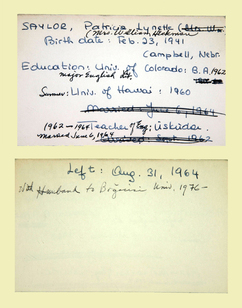 SAYLOR, Patricia Lynette
Mrs. William Hickman
Birth date: Feb. 23, 1941
Campbell, Nebr.
Education: Univ. of Colorado: B.A. 1962
major English, Lit
Summer: Univ. of Hawaii: 1960
Married June 6, 1964
1962 - 1964 Teacher of Eng; Üsküdar
Married June 6, 1964
Sept 1962
Left: Aug. 31, 1964
Husband to Univ. 1976 -